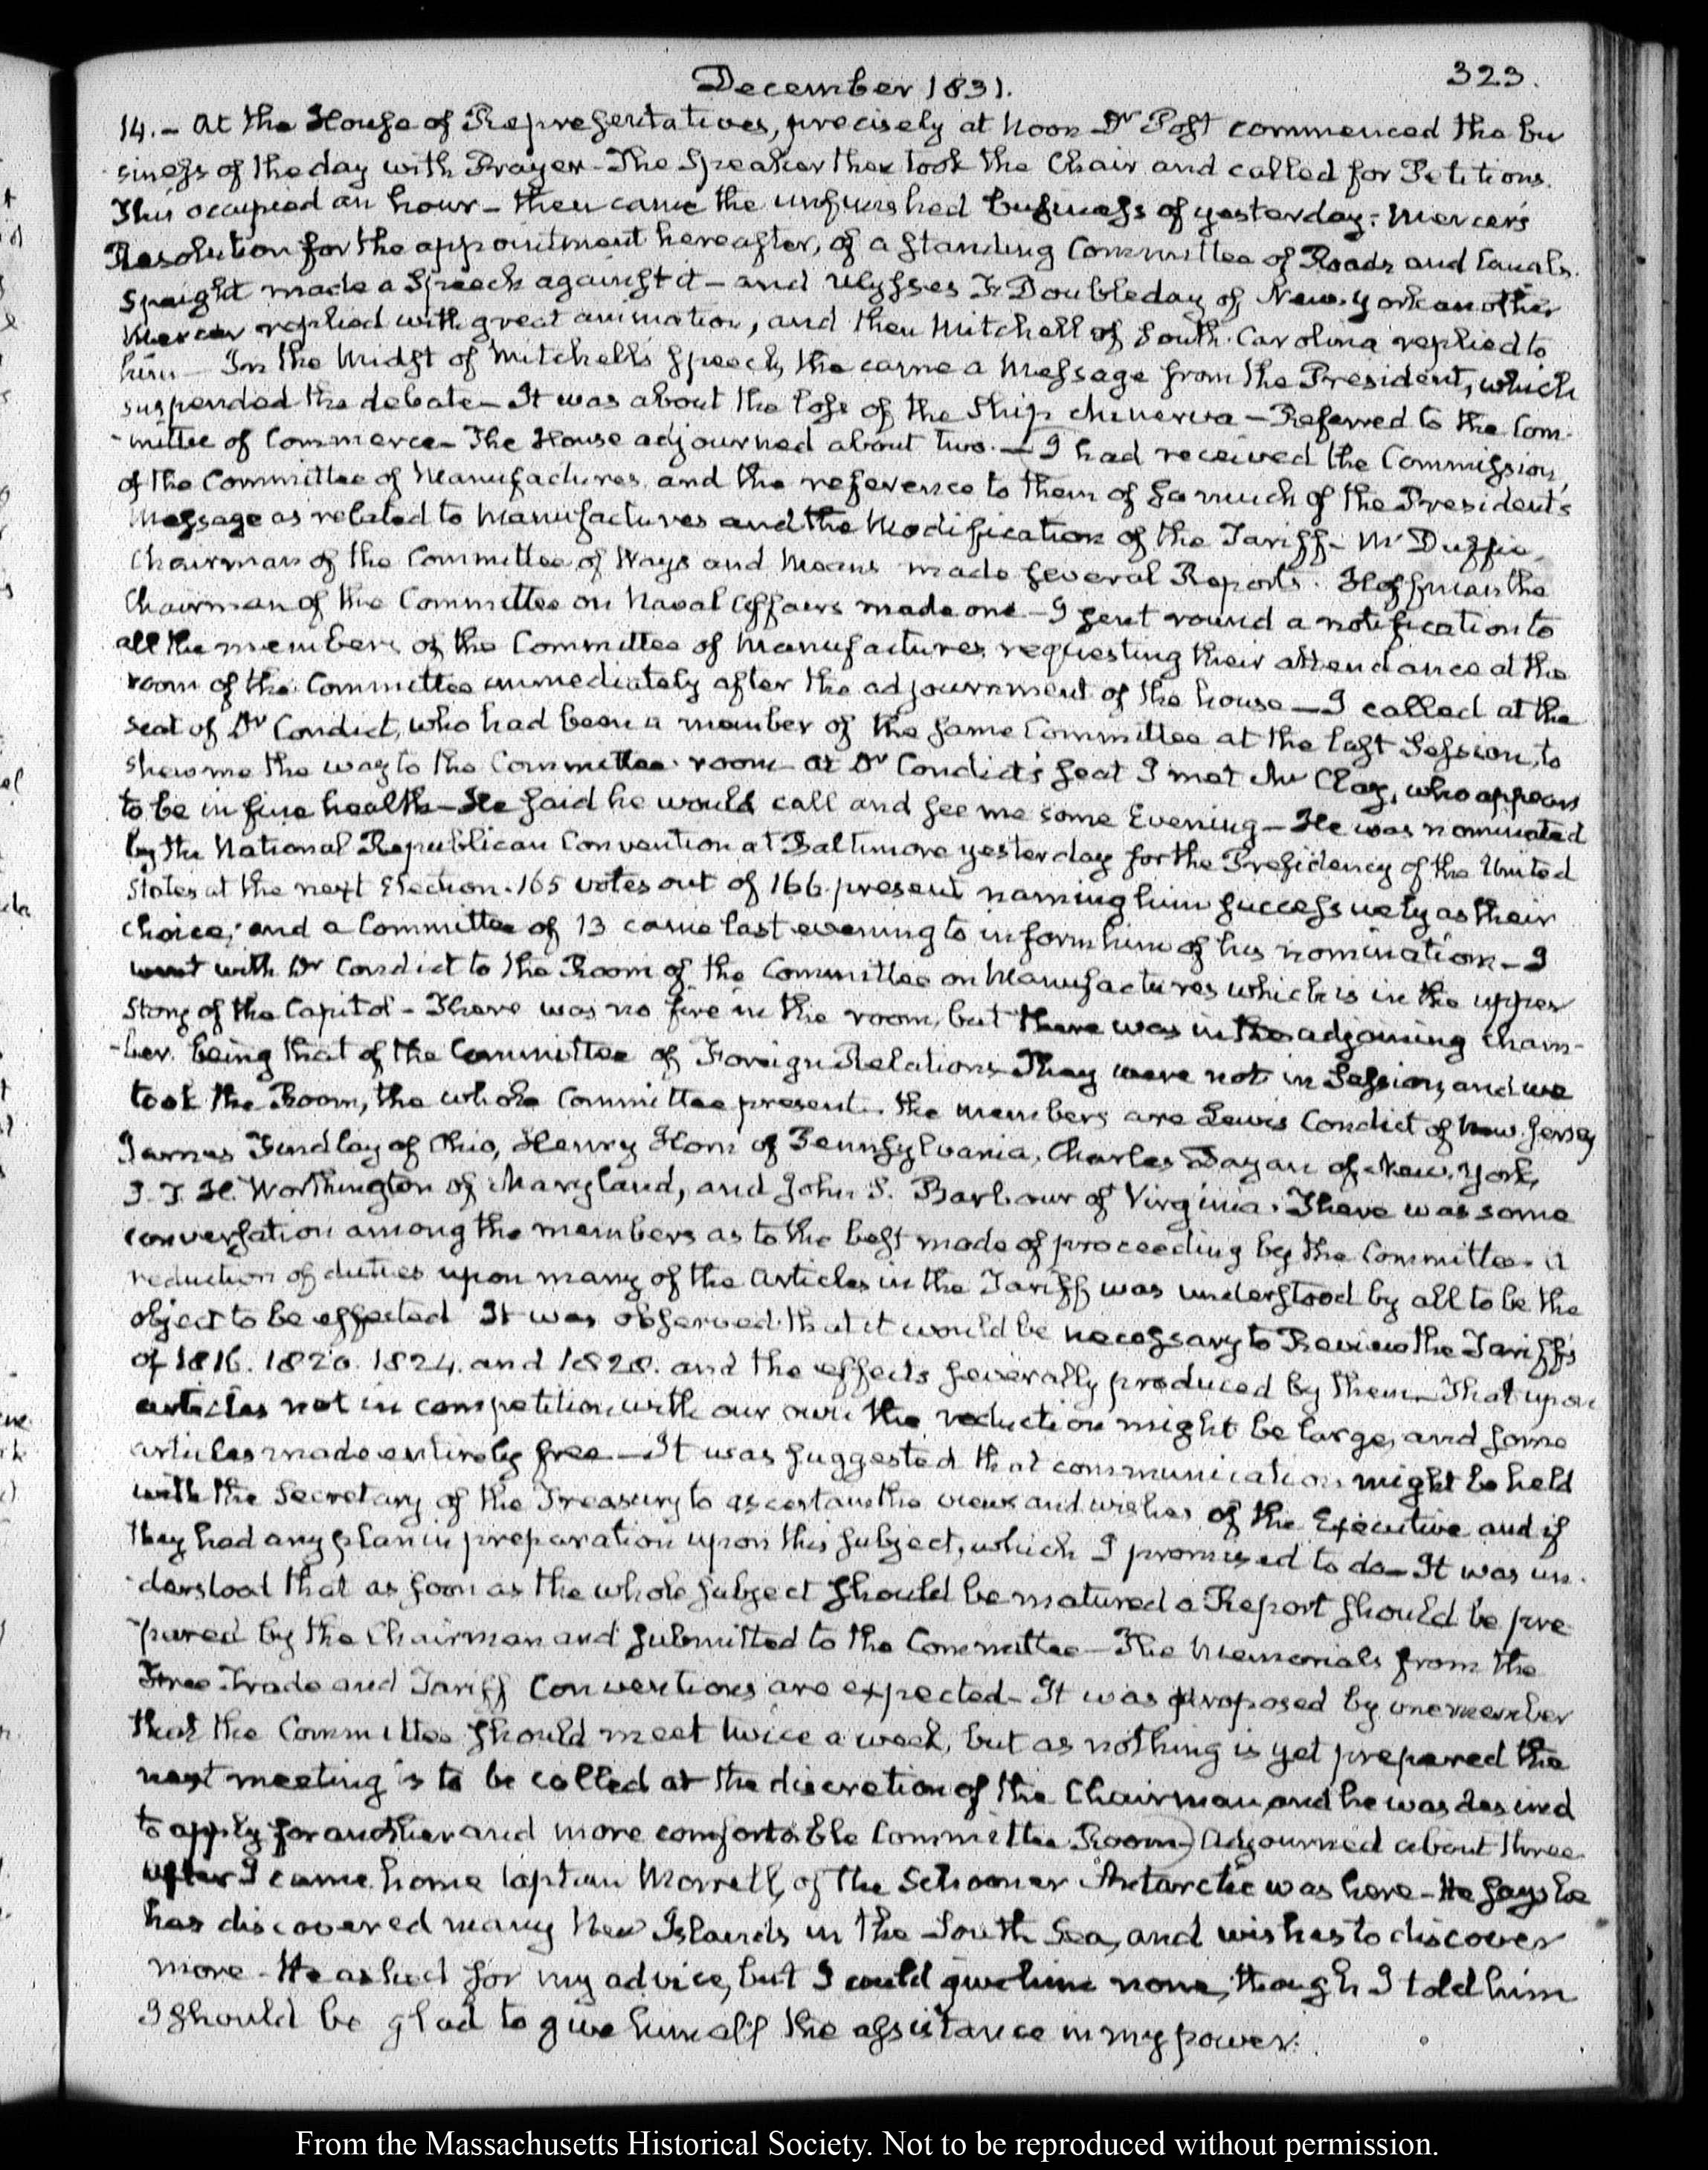 December 1831.
323.
14. – At the House of Representatives, precisely at Noon Dr Post commenced the bu
siness of the day with Prayer – The Speaker then took the Chair and called for Petitions.
This occupied an hour – then came the unfinished business of yesterday: Mercer's
Resolution for the appointment hereafter, of a standing Committee of Roads and Canals.
Speight made a Speech against it – and Ulysses F. Doubleday of New-York another
Mercer replied with great animation, and then Mitchell of South-Carolina replied to
him – In the midst of Mitchell's speech, the came a Message from the President, which
suspended the debate – It was about the loss of the Ship Minerva – Referred to the Com-
-mittee of Commerce – The House adjourned about two. – I had received the Commission,
of the Committee of Manufactures, and the reference to them of so much of the President's
Message as related to Manufactures and the Modification of the Tariff – Mc Duffie,
Chairman of the Committee of Ways and Means made several Reports. Hoffman the
Chairman of the Committee on Naval Affairs made one – I sent round a notification to
all the members of the Committee of Manufactures, requesting their attendance at the
room of the Committee immediately after the adjournment of the house – I called at the
seat of Dr Condict, who had been a member of the same Committee at the last Session, to
shew me the way to the Committee room – At Dr Condict's seat I met Mr Clay, who appears
to be in fine health – He said he would call and see me some Evening – He was nominated
by the National Republican Convention at Baltimore yesterday for the Presidency of the United
States at the next Election. 165 votes out of 166 present naming him successively as their
choice; and a Committee of 13 came last evening to inform him of his nomination – I
went with Dr Condict to the Room of the Committee on Manufactures which is in the upper
Story of the Capitol – There was no fire in the room, but there was in the adjoining cham-
-ber being that of the Committee of Foreign Relations – They were not in Session, and we
took the Room, the whole Committee present. The members are Lewis Condict of New-Jersey
James Findlay of Ohio, Henry Horn of Pennsylvania, Charles Dayan of New-York,
J. T. H. Worthington of Maryland, and John S. Barbour of Virginia. There was some
conversation among the members as to the best mode of proceeding by the Committee. A
reduction of duties upon many of the Articles in the Tariff was understood by all to be the
object to be effected It was observed that it would be necessary to Review the Tariffs
of 1816. 1820. 1824. and 1828. and the effects severally produced by them – That upon
articles not in competition with our own the reduction might be large, and some
articles made entirely free – It was suggested that communication might be held
with the Secretary of the Treasury to ascertain the views and wishes of the Executive and if
they had any plan in preparation upon this subject, which I promised to do – It was un-
-derstood that as soon as the whole subject should be matured a Report should be pre
-pared by the Chairman and submitted to the Committee – The Memorials from the
Free Trade and Tariff Conventions are expected – It was proposed by one member
that the Committee should meet twice a week, but as nothing is yet prepared the
next meeting is to be called at the discretion of the Chairman and he was desired
to apply for another and more comfortable Committee Room) Adjourned about three.
After I came home Captain Morrell, of the Schooner Antarctic was here – He says he
has discovered many New Islands in the South Sea, and wishes to discover
more – He asked for my advice, but I could give him none, though I told him
I should be glad to give him all the assistance in my power.
From the Massachusetts Historical Society. Not to be reproduced without permission.